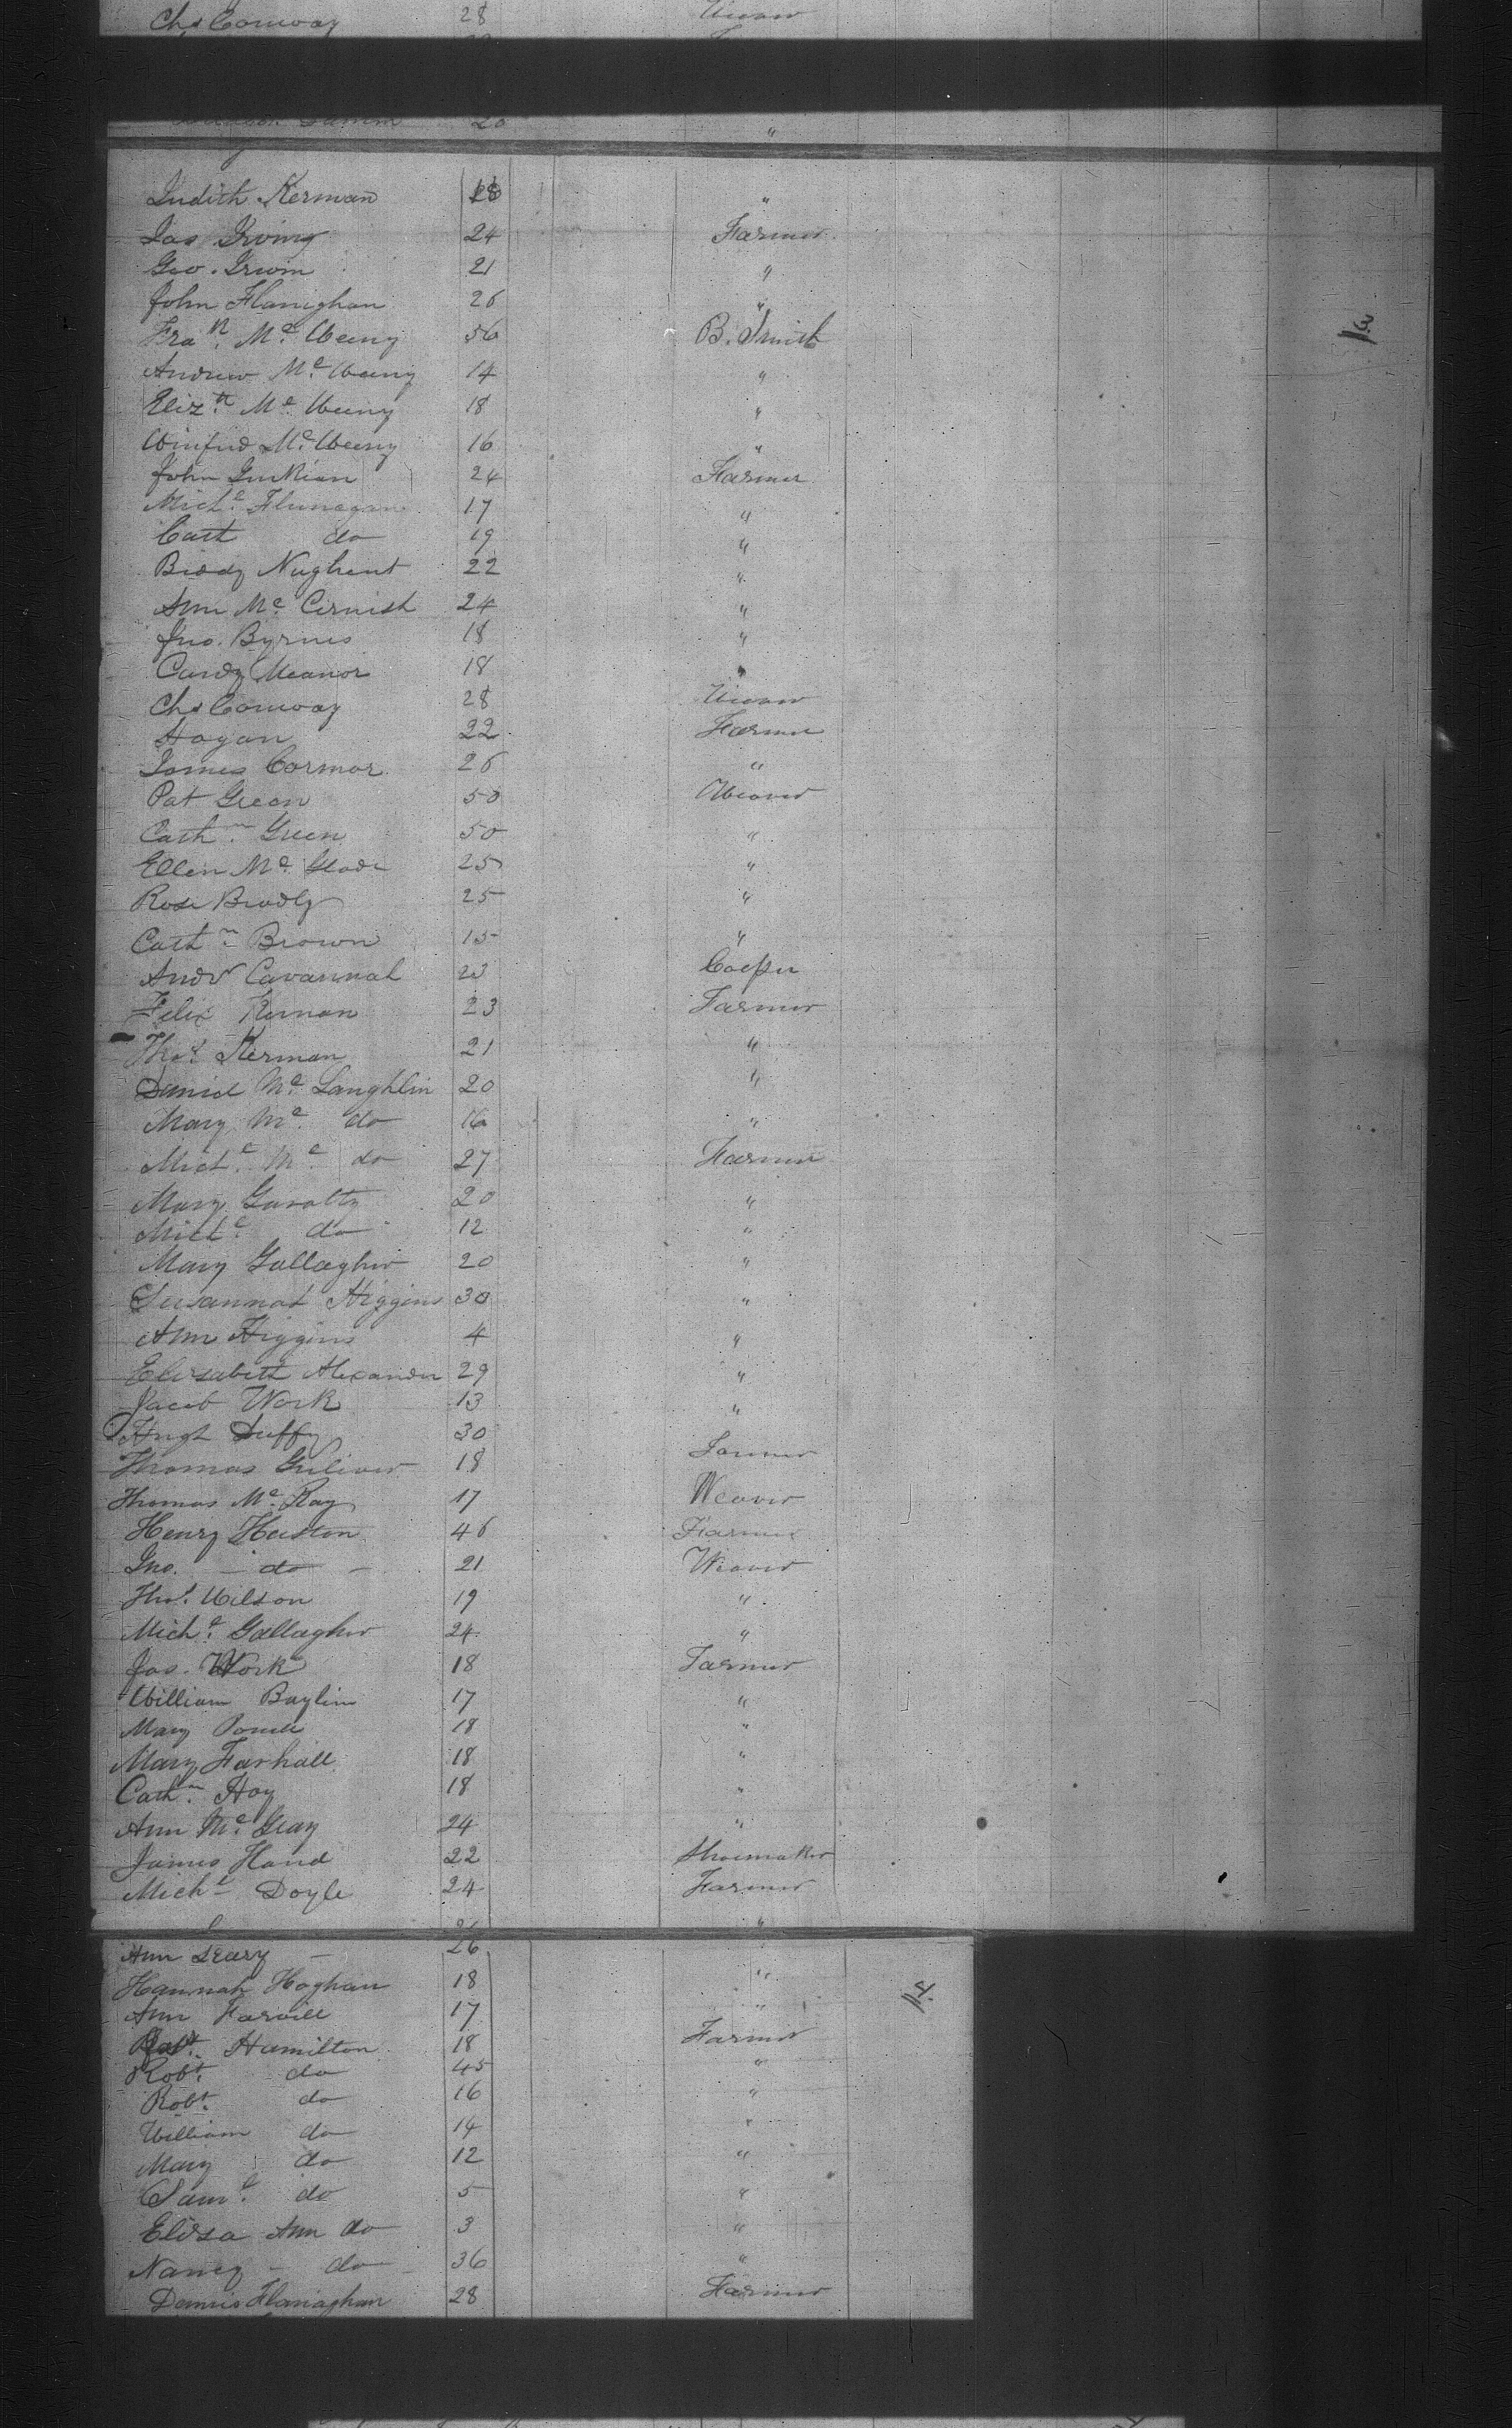 Chs Conway 28 Weaver
20 "
Judith Kerman 18 "
Jas Irving 24 Farmer
Geo. Irwin 21 "
John Flanighan 26 "
Fran. Mc. Weeny 56 B. Smith
Andrew Mc. Weeny 14 "
Elizth. Mc. Weeny 18 "
Winfrd Mc. Weeny 16 "
John Guckian 24 Farmer
Michl. Flunegan 17 "
Cath do 19 "
Biddy Nughent 22 "
Ann Mc. Cernish 24 "
Jno. Byrnes 18 "
Candy Meanor 18 "
Chs Conway 28 Weaver
Hogan 22 Farmer
James Cormor 26 "
Pat Green 50 Weaver
Cathn. Green 50 "
Ellen Mc. Glade 25 "
Rose Bradly 25 "
Cathn. Brown 15 "
Andw Cavannah 23 Cooper
Felix Kernan 23 Farmer
Thos. Kerman 21 "
Daniel Mc. Laughlin 20 "
Mary Mc. do 16 "
Michl. Mc. do 27 Farmer
Mary Garalty 20 "
Michl. do 12 "
Mary Gallagher 20 "
Susannah Higgins 30 "
Ann Higgins 4 "
Elisabeth Alexander 29 "
Jacob Work 13 "
Hugh Duffy 30
Thomas Guliver 18 Farmer
Thomas Mc. Kay 17 Weaver
Henry Huston 46 Farmer
Jno. - do - 21 Weaver
Thos. Wilson 19 "
Michl. Gallagher 24 "
Jas. Work 18 Farmer
William Baylin 17 "
Mary 18 "
Mary Farhall 18 "
Cathn. Hoy 18 "
Ann Mc. Geay 24 "
James Hand 22 Shoemaker
Michl Doyle 24 Farmer
26 "
Ann Leary - 26
Hannah Hoghan 18 "
Ann Farvill 17 "
Hamilton 18 Farmer
Robt. do 45 "
Robt. do 16 "
William do 14 "
Mary do 12 "
Saml. do 5 "
Eliza Ann do 3 "
Nancy - do - 36 "
Dennis Flanaghan 28 Farmer
3.
4.